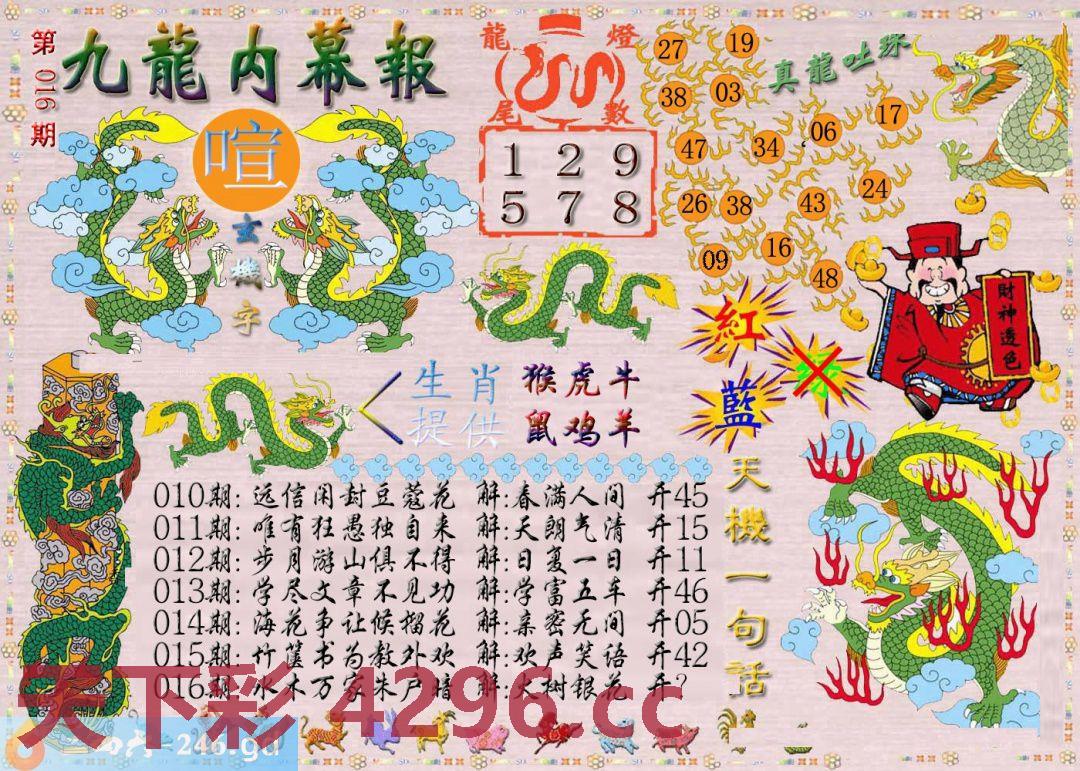 第016期
九龍内幕報
喧
玄機字
龍尾
燈數
1 2 9
5 7 8
真龍吐珠
27 19
38 03
47 34 06 17
26 38 43 24
09 16 48
財神透色
紅
绿
藍
生肖 猴虎牛
提供 鼠鸡羊
天機一句話
010期: 远信闲封豆蔻花 解:春满人间 开45
011期: 唯有狂愚独自来 解:天朗气清 开15
012期: 步月游山俱不得 解:日复一日 开11
013期: 学尽文章不见功 解:学富五车 开46
014期: 海花争让候榴花 解:亲密无间 开05
015期: 竹篴书为教外欢 解:欢声笑语 开42
016期: 水木万家朱户暗 解:火树银花 开?
天下彩 4296.cc
=246.gd